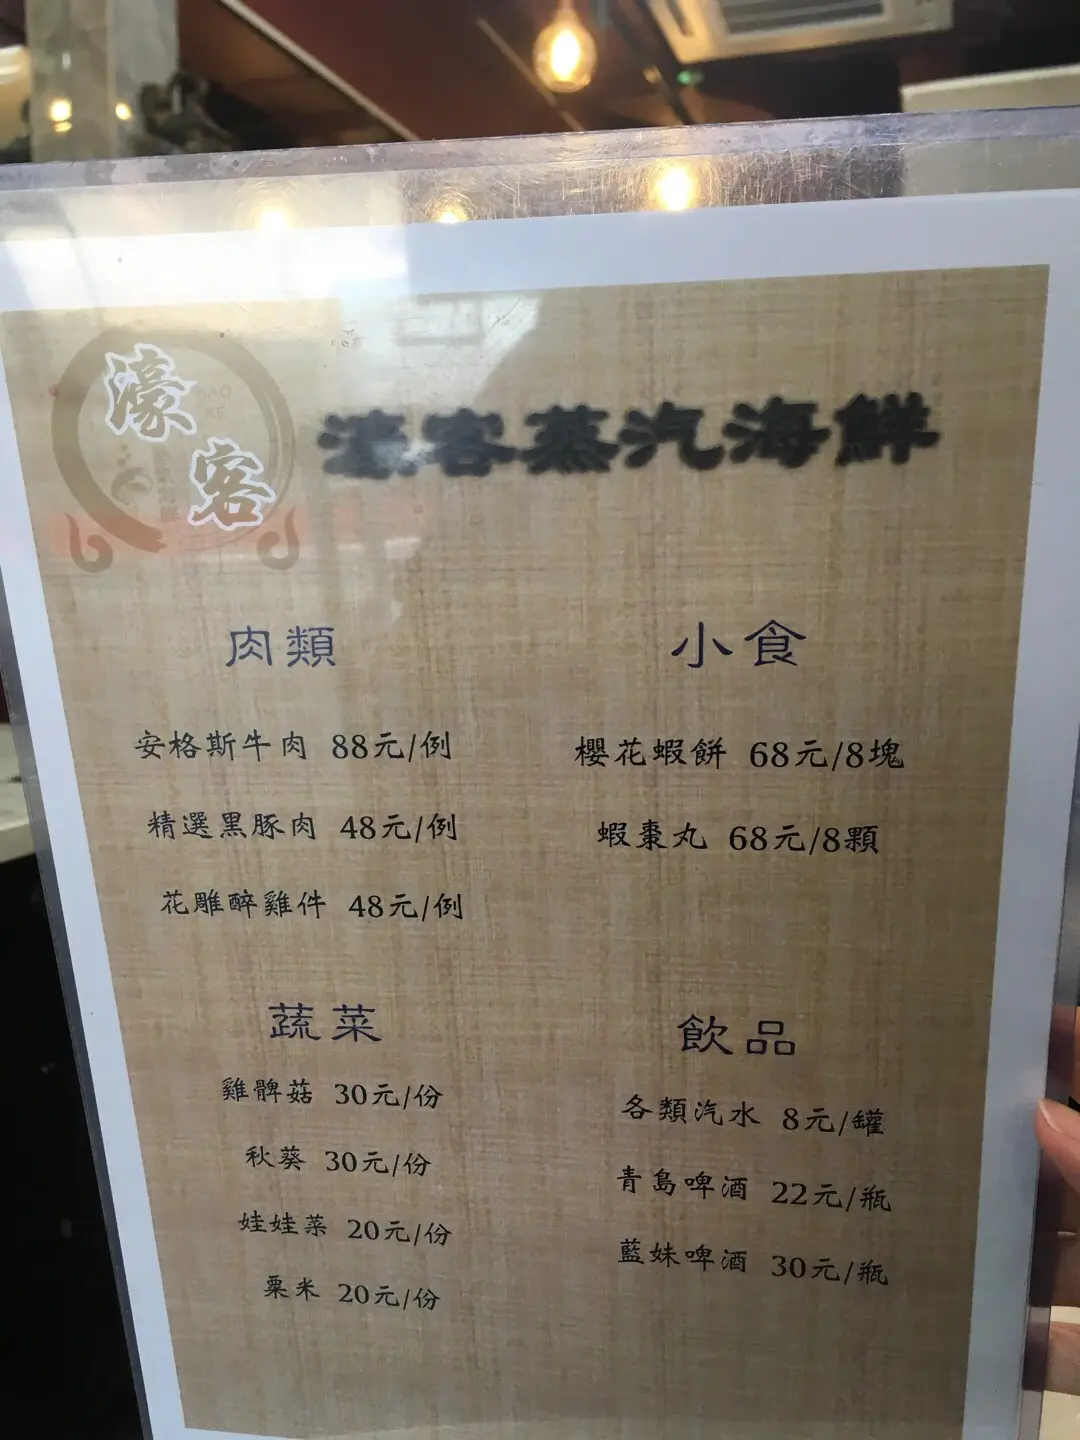 濠客
濠客蒸汽海鮮
肉類
安格斯牛肉 88元/例
精選黑豚肉 48元/例
花雕醉雞件 48元/例
小食
櫻花蝦餅 68元/8塊
蝦棗丸 68元/8顆
蔬菜
雞髀菇 30元/份
秋葵 30元/份
娃娃菜 20元/份
粟米 20元/份
飲品
各類汽水 8元/罐
青島啤酒 22元/瓶
藍妹啤酒 30元/瓶